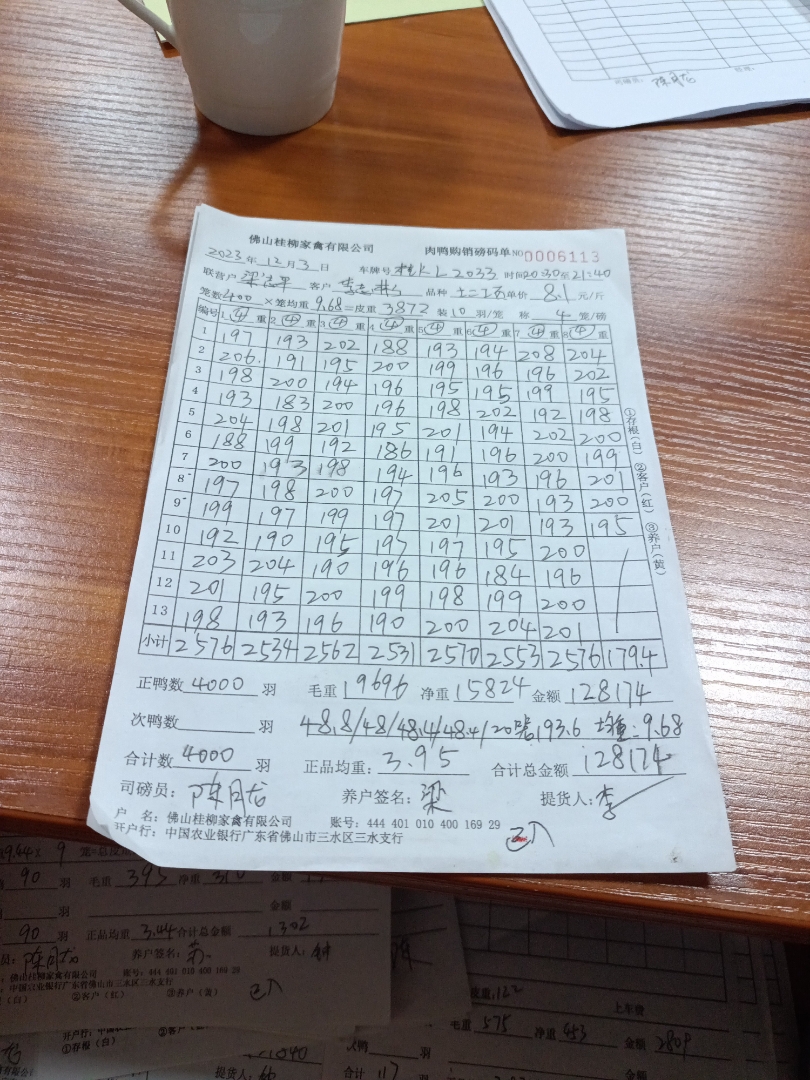 司磅员: 陈月龙
佛山桂柳家禽有限公司 肉鸭购销磅码单 NO 0006113
2023 年 12 月 3 日 车牌号 2033 时间 20:30 至 21:40
联营户 客户 品种 单价 8.1 元/斤
笼数 400 ×笼均重 9.68 =皮重 3872 装 10 羽/笼 称 4 笼/磅
编号 1 ④ 重 2 ④ 重 3 ④ 重 4 ④ 重 5 ④ 重 6 ④ 重 7 ④ 重 8 ④ 重
1 197 193 202 188 193 194 208 204
2 206 191 195 200 199 196 196 202
3 198 200 194 196 195 195 199 195
4 193 183 200 196 198 202 192 198
5 204 198 201 195 201 194 202 200
6 188 199 192 186 191 196 200 199
7 200 193 198 194 196 193 196 201
8 197 198 200 197 205 200 193 200
9 199 197 199 197 201 201 193 195
10 192 190 195 197 197 195 200
11 203 204 190 196 196 184 196
12 201 195 200 199 198 199 200
13 198 193 196 190 200 204 201
小计 2576 2534 2562 2531 2570 2553 2576 1794
①存根(白) ②客户(红) ③养户(黄)
正鸭数 4000 羽 毛重 19696 净重 15824 金额 128174
次鸭数 羽 48.8/48/48.4/48.4/20号 193.6 均重=9.68
合计数 4000 羽 正品均重: 3.95 合计总金额 128174
司磅员: 陈月龙 养户签名: 梁 提货人: 李
户 名: 佛山桂柳家禽有限公司 账号: 444 401 010 400 169 29
开户行: 中国农业银行广东省佛山市三水区三水支行 已入
90 羽 毛重 395 净重 310 金额
羽 金额
90 羽 正品均重 3.44 合计总金额 1302
陈月龙 养户签名: 提货人: 钟
佛山桂柳家禽有限公司 账号: 444 401 010 400 169 29
中国农业银行广东省佛山市三水区三水支行
(白) ②客户(红) ③养户(黄) 已入
皮重 122 上车费
毛重 575 净重 453 金额 2809
①存根(白)
次鸭 羽 金额
提货人: 合计 117 羽